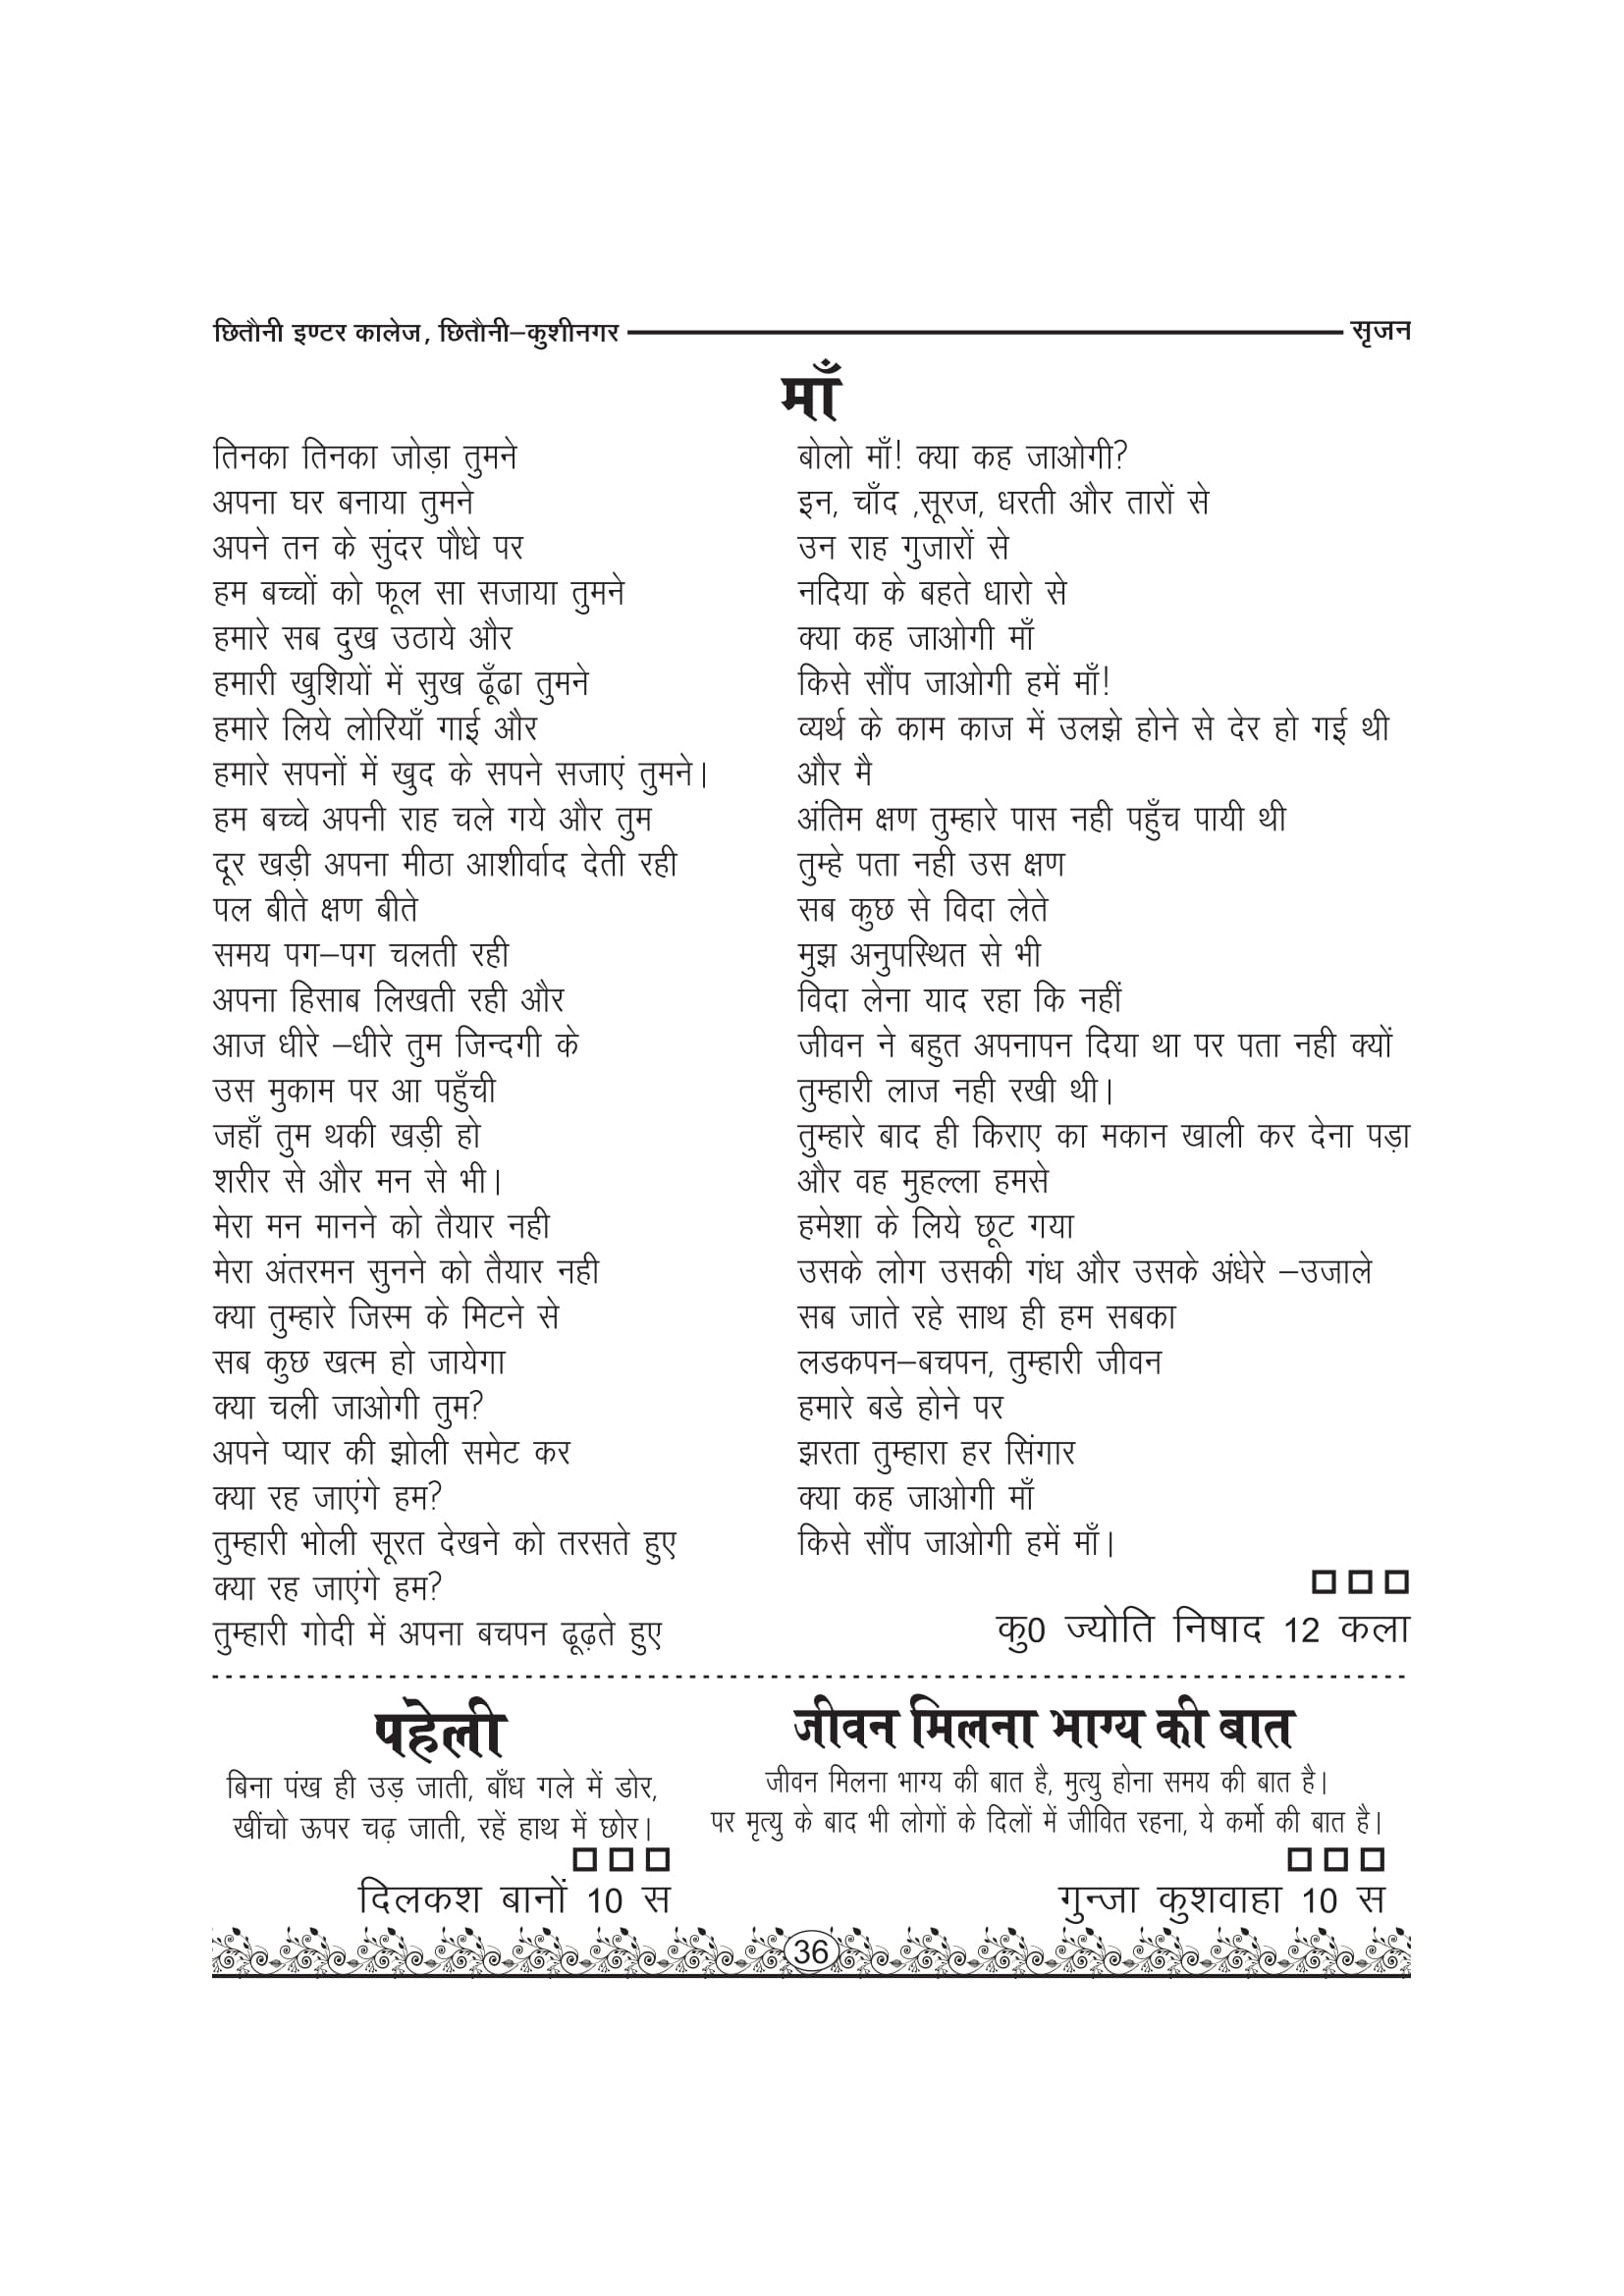 छितौनी इण्टर कालेज, छितौनी–कुशीनगर सृजन
माँ
तिनका तिनका जोड़ा तुमने
अपना घर बनाया तुमने
अपने तन के सुंदर पौधे पर
हम बच्चों को फूल सा सजाया तुमने
हमारे सब दुख उठाये और
हमारी खुशियों में सुख ढूँढा तुमने
हमारे लिये लोरियाँ गाई और
हमारे सपनों में खुद के सपने सजाएं तुमने।
हम बच्चे अपनी राह चले गये और तुम
दूर खड़ी अपना मीठा आशीर्वाद देती रही
पल बीते क्षण बीते
समय पग–पग चलती रही
अपना हिसाब लिखती रही और
आज धीरे –धीरे तुम जिन्दगी के
उस मुकाम पर आ पहुँची
जहाँ तुम थकी खड़ी हो
शरीर से और मन से भी।
मेरा मन मानने को तैयार नही
मेरा अंतरमन सुनने को तैयार नही
क्या तुम्हारे जिस्म के मिटने से
सब कुछ खत्म हो जायेगा
क्या चली जाओगी तुम?
अपने प्यार की झोली समेट कर
क्या रह जाएंगे हम?
तुम्हारी भोली सूरत देखने को तरसते हुए
क्या रह जाएंगे हम?
तुम्हारी गोदी में अपना बचपन ढूढ़ते हुए
बोलो माँ! क्या कह जाओगी?
इन, चाँद ,सूरज, धरती और तारों से
उन राह गुजारों से
नदिया के बहते धारो से
क्या कह जाओगी माँ
किसे सौंप जाओगी हमें माँ!
व्यर्थ के काम काज में उलझे होने से देर हो गई थी
और मै
अंतिम क्षण तुम्हारे पास नही पहुँच पायी थी
तुम्हे पता नही उस क्षण
सब कुछ से विदा लेते
मुझ अनुपस्थित से भी
विदा लेना याद रहा कि नहीं
जीवन ने बहुत अपनापन दिया था पर पता नही क्यों
तुम्हारी लाज नही रखी थी।
तुम्हारे बाद ही किराए का मकान खाली कर देना पड़ा
और वह मुहल्ला हमसे
हमेशा के लिये छूट गया
उसके लोग उसकी गंध और उसके अंधेरे –उजाले
सब जाते रहे साथ ही हम सबका
लडकपन–बचपन, तुम्हारी जीवन
हमारे बडे होने पर
झरता तुम्हारा हर सिंगार
क्या कह जाओगी माँ
किसे सौंप जाओगी हमें माँ।
कु0 ज्योति निषाद 12 कला
पहेली
बिना पंख ही उड़ जाती, बाँध गले में डोर,
खींचो ऊपर चढ़ जाती, रहें हाथ में छोर।
दिलकश बानों 10 स
जीवन मिलना भाग्य की बात
जीवन मिलना भाग्य की बात है, मुत्यु होना समय की बात है।
पर मृत्यु के बाद भी लोगों के दिलों में जीवित रहना, ये कर्मो की बात है।
गुन्जा कुशवाहा 10 स
36